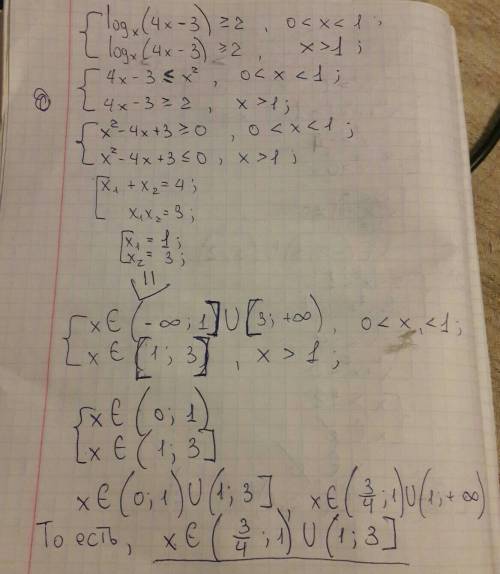 { logₓ(4x-3) ≥ 2 , 0 < x < 1 ;
{ logₓ(4x-3) ≥ 2 , x > 1 ;
{ 4x-3 ≤ x² , 0 < x < 1 ;
{ 4x-3 ≥ 2 , x > 1 ;
{ x²-4x+3 ≥ 0 , 0 < x < 1 ;
{ x²-4x+3 ≤ 0 , x > 1 ;
[ x₁ + x₂ = 4 ;
[ x₁x₂ = 3 ;
[ x₁ = 1 ;
[ x₂ = 3 ;
{ x ∈ (-∞; 1] ∪ [3; +∞) , 0 < x < 1 ;
{ x ∈ [1; 3] , x > 1 ;
{ x ∈ (0; 1)
{ x ∈ (1; 3]
x ∈ (0; 1) ∪ (1; 3] , x ∈ (3/4; 1) ∪ (1; +∞)
То есть, x ∈ (3/4; 1) ∪ (1; 3]